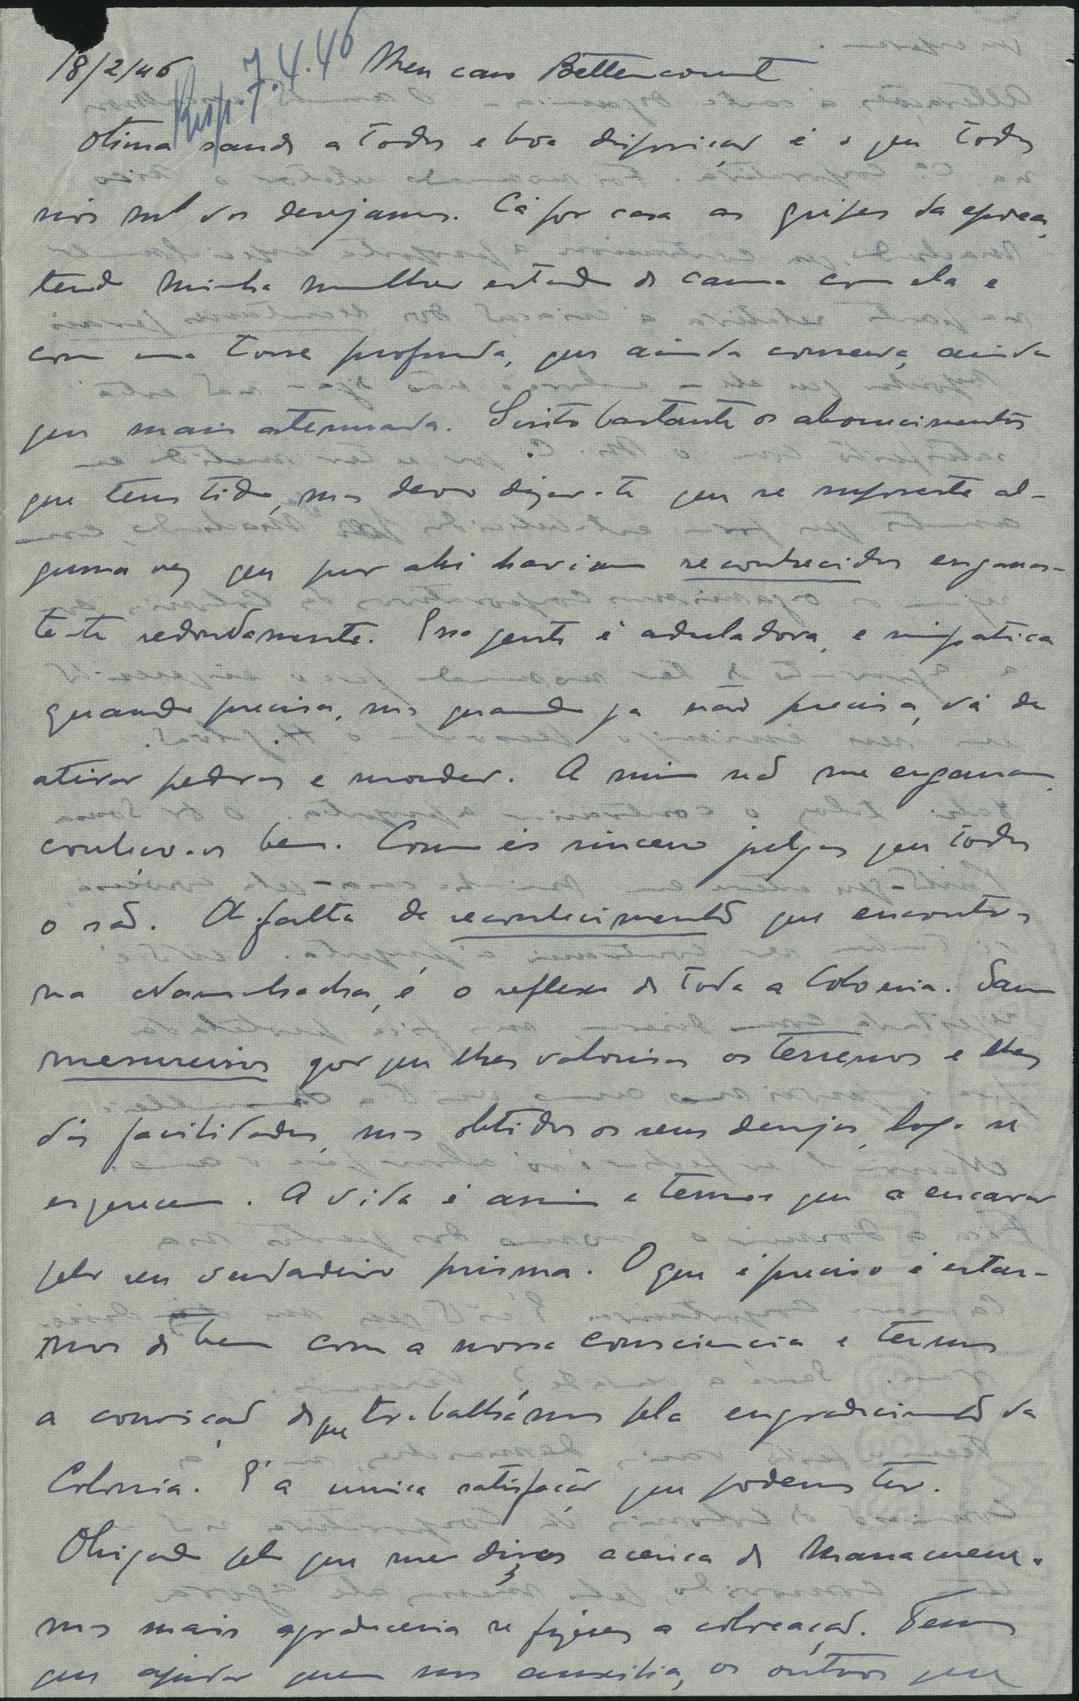 18/2/46 Resp. 7.4.46 Meu caro Bettencourt
Otima saude a todos e boa disposição é o que todos
nós vos desejamos. Cá por casa as gripes da epoca,
tendo minha mulher estado de cama com ela e
com uma tosse profunda, que ainda conserva, ainda
que mais atenuada. Sinto bastante os aborrecimentos
que tens tido, mas devo dizer-te que se supozeste al-
guma vez que por ahi haviam reconhecidos enganas-
te-te redondamente. Essa gente é aduladora, e simpatica
quando precisa, mas quando ja não precisa, vá de
atirar pedras e morder. A mim não me enganam,
conheco-os bem. Como és sincero julgas que todos
o são. A falta de reconhecimento que encontras
na Namuhacha, é o reflexo de toda a Colonia. Sam
mesureiros por que lhes valorisas os terrenos e lhes
dás facilidades, mas obtidos os seus desejos, logo se
esquecem. A vida é assim e temos que a encarar
pelo seu verdadeiro prisma. O que é preciso é estar-
mos de bem com a nossa consciencia e termos
a convicção de que trabalhámos pelo engradecimento da
Colonia. É a unica satisfação que podemos ter.
Obrigado pelo que me dizes acerca de
mas mais agradeceria se fizeres a colocação. Temos
que ajudar quem nos auxilia, os outros que